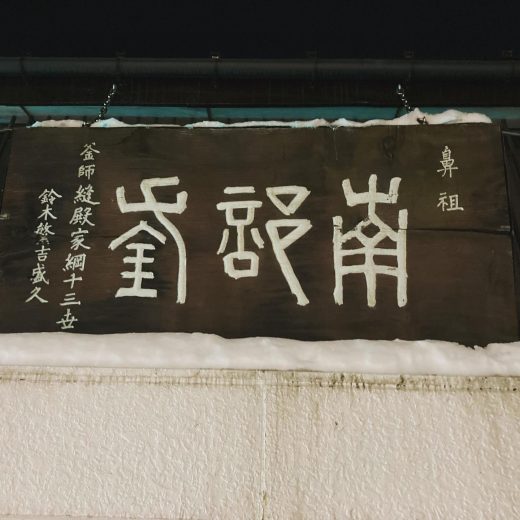 鼻祖
南部釜
釜師縫殿家綱十三世
鈴木繁吉盛久